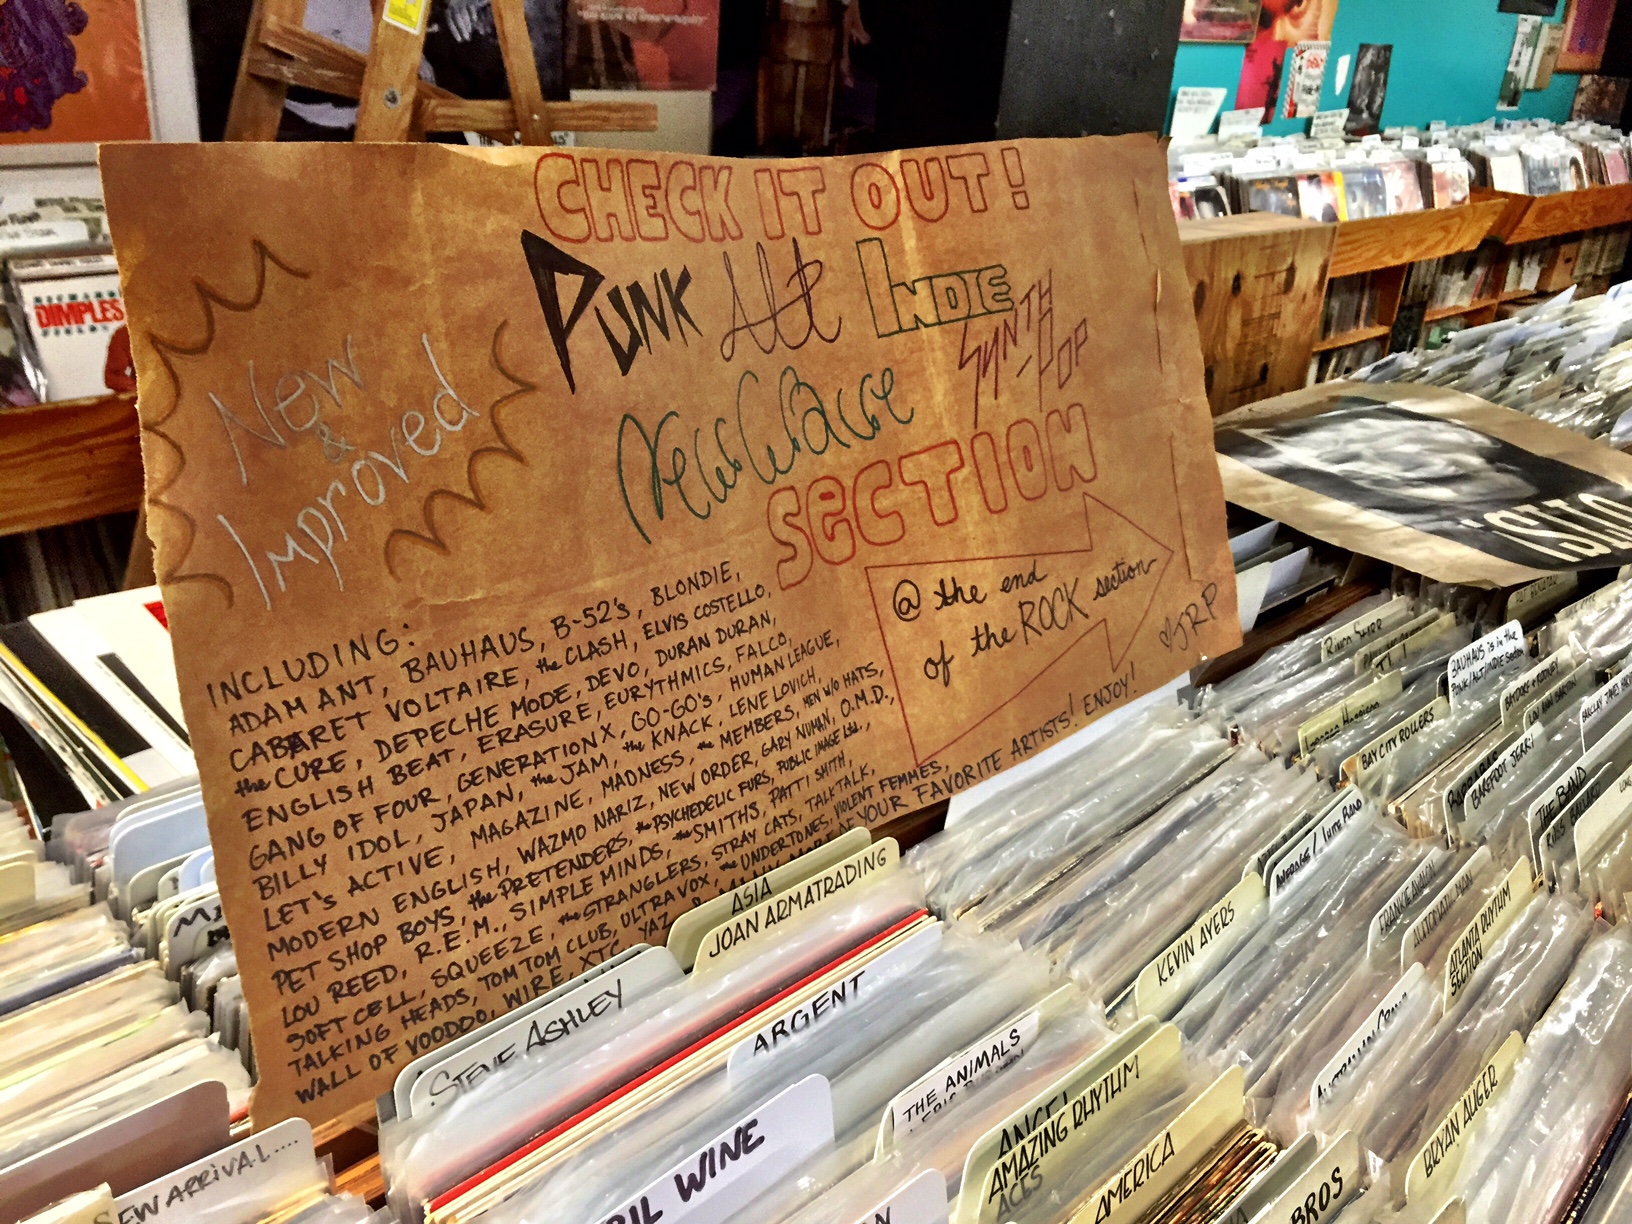 CHECK IT OUT!
PUNK Alt INDIE
SYNTH
-POP
New Wave
SECTION
New
&
Improved
@ the end
of the ROCK section
♡JRP
INCLUDING:
ADAM ANT, BAUHAUS, B-52's, BLONDIE,
CABARET VOLTAIRE, the CLASH, ELVIS COSTELLO,
the CURE, DEPECHE MODE, DEVO, DURAN DURAN,
ENGLISH BEAT, ERASURE, EURYTHMICS, FALCO,
GANG OF FOUR, GENERATION X, GO-GO's, HUMAN LEAGUE,
BILLY IDOL, JAPAN, the JAM, the KNACK, LENE LOVICH,
LET'S ACTIVE, MAGAZINE, MADNESS, the MEMBERS, MEN W/O HATS,
MODERN ENGLISH, WAZMO NARIZ, NEW ORDER, GARY NUMAN, O.M.D.,
PET SHOP BOYS, the PRETENDERS, the PSYCHEDELIC FURS, PUBLIC IMAGE Ltd.,
LOU REED, R.E.M., SIMPLE MINDS, the SMITHS, PATTI SMITH,
SOFT CELL, SQUEEZE, the STRANGLERS, STRAY CATS, TALK TALK,
TALKING HEADS, TOM TOM CLUB, ULTRAVOX, the UNDERTONES, VIOLENT FEMMES,
WALL OF VOODOO, WIRE, XTC, YAZ & MANY MORE OF YOUR FAVORITE ARTISTS! ENJOY!
DIMPLES
ASIA
JOAN ARMATRADING
STEVE ASHLEY
ARGENT
THE ANIMALS
ANGEL
AMAZING RHYTHM
ACES
AMERICA
WINE
NEW ARRIVAL....
KEVIN AYERS
AVERAGE WHITE BAND
FRANKIE AVALON
AUTOMATIC MAN
ATLANTA RHYTHM
SECTION
BRYAN AUGER
BROS
BAY CITY ROLLERS
BAREFOOT JERRY
THE BAND
RUSS BALLARD
BAUHAUS is in the
PUNK/ALT/INDIE Section
BATDORF & RODNEY